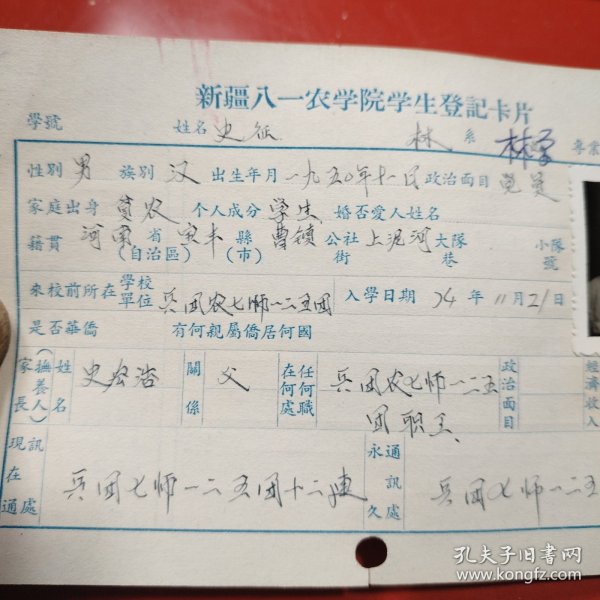 新疆八一农学院学生登記卡片
學號 姓名 史征 林 系 林学 專業
性別 男 族別 汉 出生年月 一九五〇年十一月 政治面目 党员
家庭出身 贫农 个人成分 学生 婚否愛人姓名
籍貫 河南 省(自治區) 宝丰 縣(市) 曹镇 公社街 上泥河 大隊巷 小隊號
來校前所在學校單位 兵团农七师一二五团 入學日期 74 年 11 月 21 日
是否華僑 有何親屬僑居何國
家長(撫养人) 姓名 史宏浩 關係 父 在何處任何職 兵团农七师一二五团职工 政治面目 經濟收入
現在通訊處 兵团七师一二五团十二連 永久通訊處 兵团七师一二五
孔夫子旧书网
www.kongfz.com